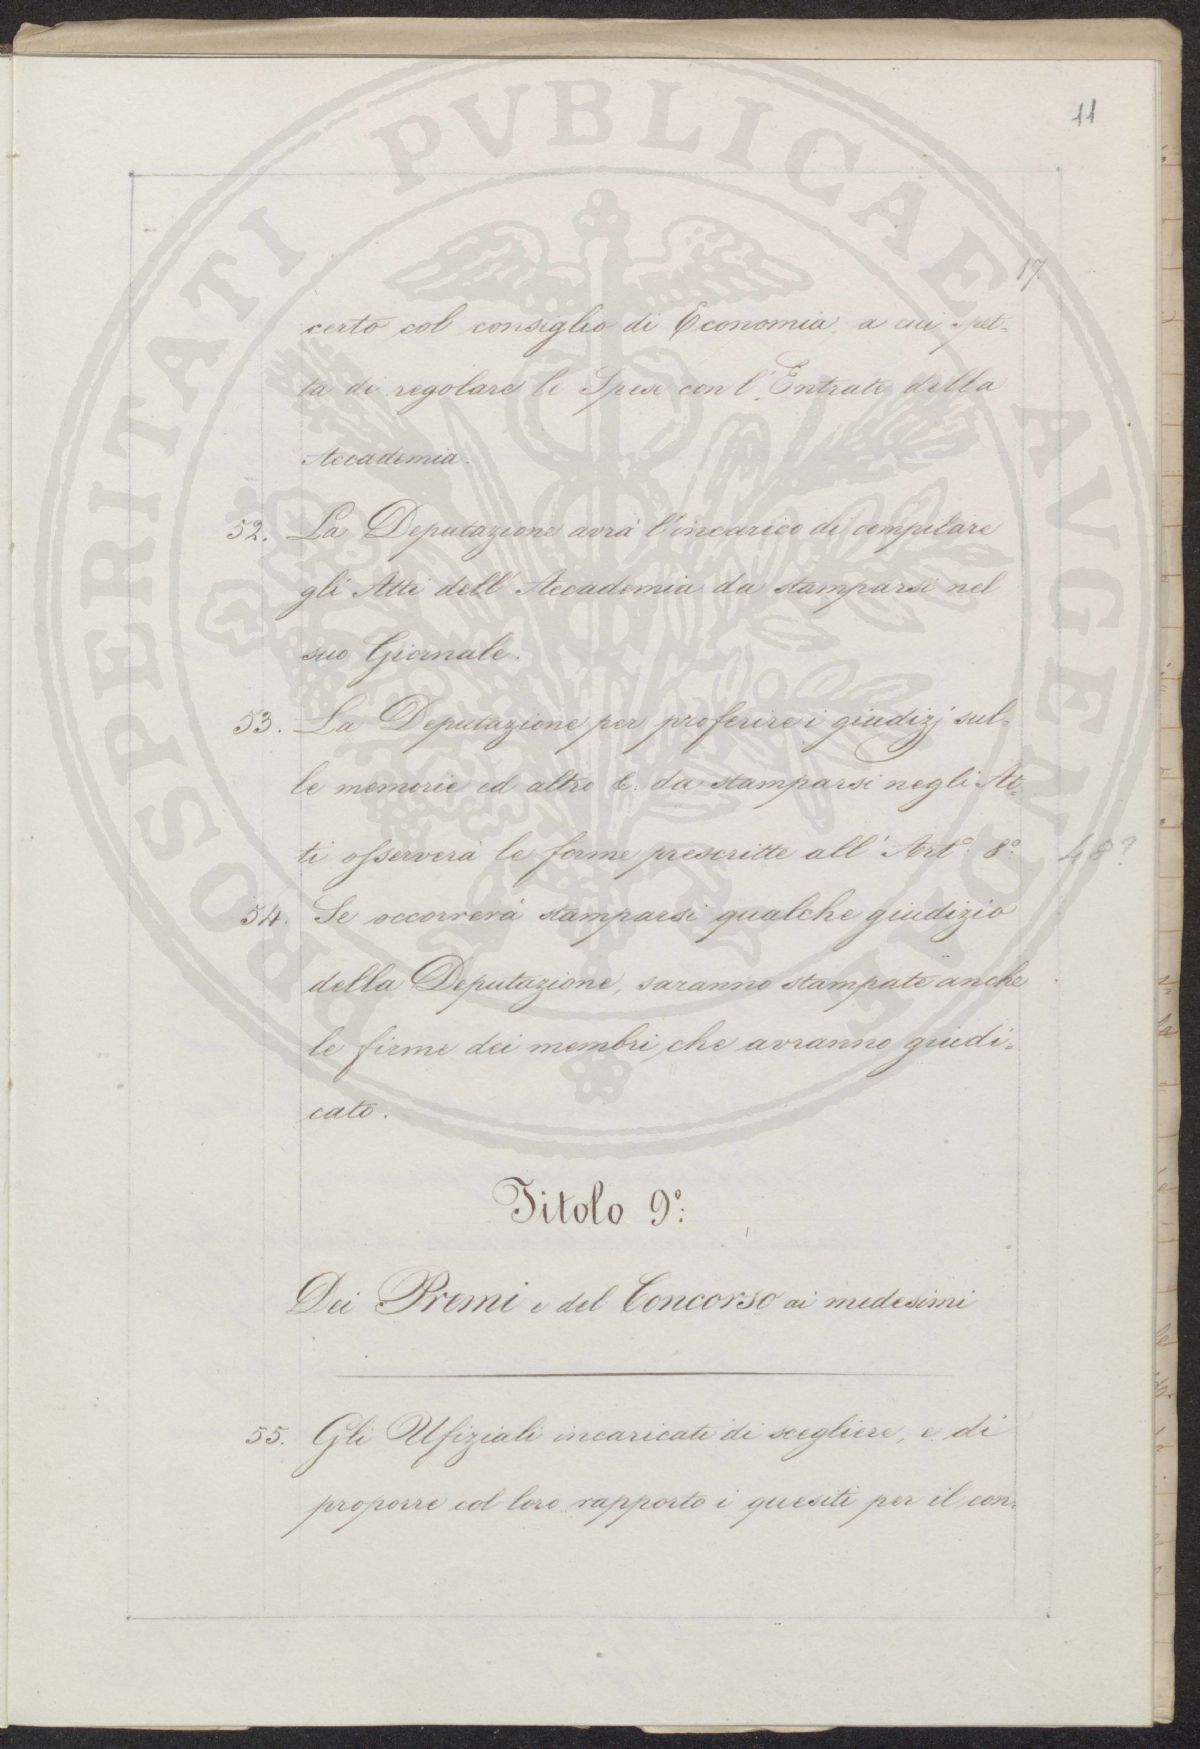 11
17.
certo col consiglio di Economia, a cui spet-
ta di regolare le Spese con l'Entrate della
Accademia.
52. La Deputazione avrà l'incarico di compilare
gli Atti dell'Accademia da stamparsi nel
suo Giornale.
53. La Deputazione per proferire i giudizj sul-
le memorie ed altro &. da stamparsi negli At-
ti osserverà le forme prescritte all'Art.° 8°. 48?
54. Se occorrerà stamparsi qualche giudizio
della Deputazione, saranno stampate anche
le firme dei membri, che avranno giudi-
cato.
Titolo 9°:
Dei Premi e del Concorso ai medesimi
55. Gli Ufiziali incaricati di scegliere, e di
proporre col loro rapporto i quesiti per il con-
PROSPERITATI PVBLICAE AVGENDAE